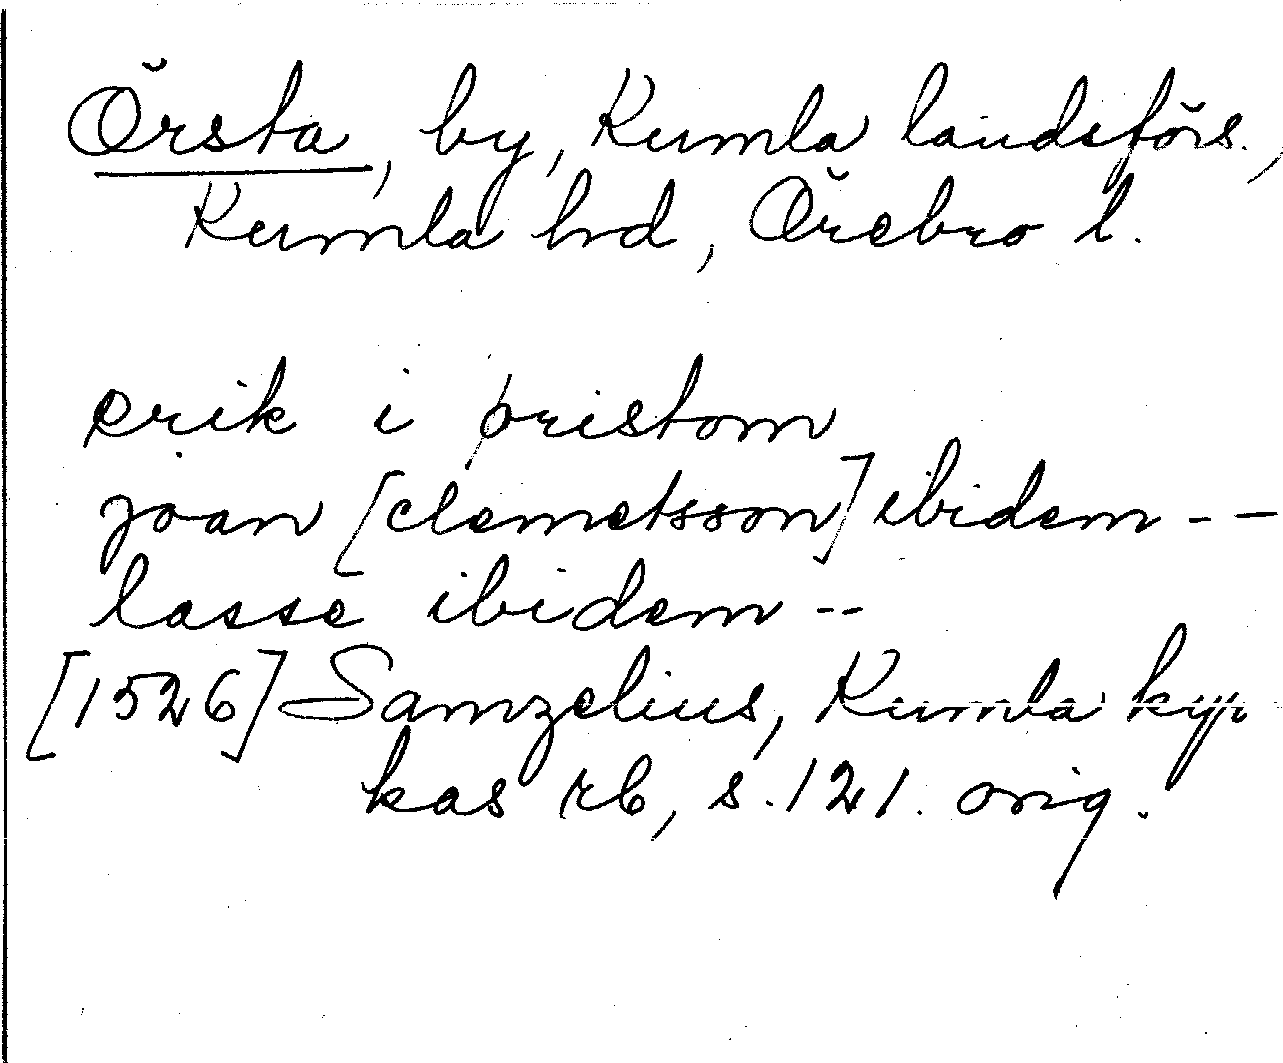 Örsta, by, Kumla landsförs.,
Kumla hd, Örebro l.
erik i øristom
joan [clemetsson] ibidem --
lasse ibidem --
[1526] Samzelius, Kumla kyr
kas rb, s. 121. orig.